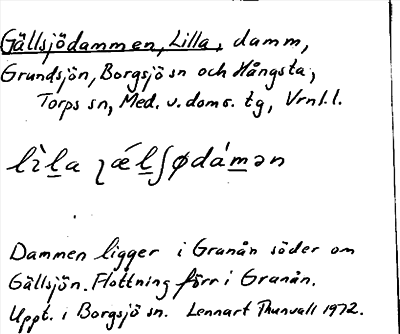 Gällsjödammen, Lilla, damm,
Grundsjön, Borgsjö sn och Hångsta,
Torps sn, Med. v. doms. tg, Vrnl.l.
lìla ʅǽlʃødámən
Dammen ligger i Granån söder om
Gällsjön. Flottning förr i Granån.
Uppt. i Borgsjö sn. Lennart Thunvall 1972.